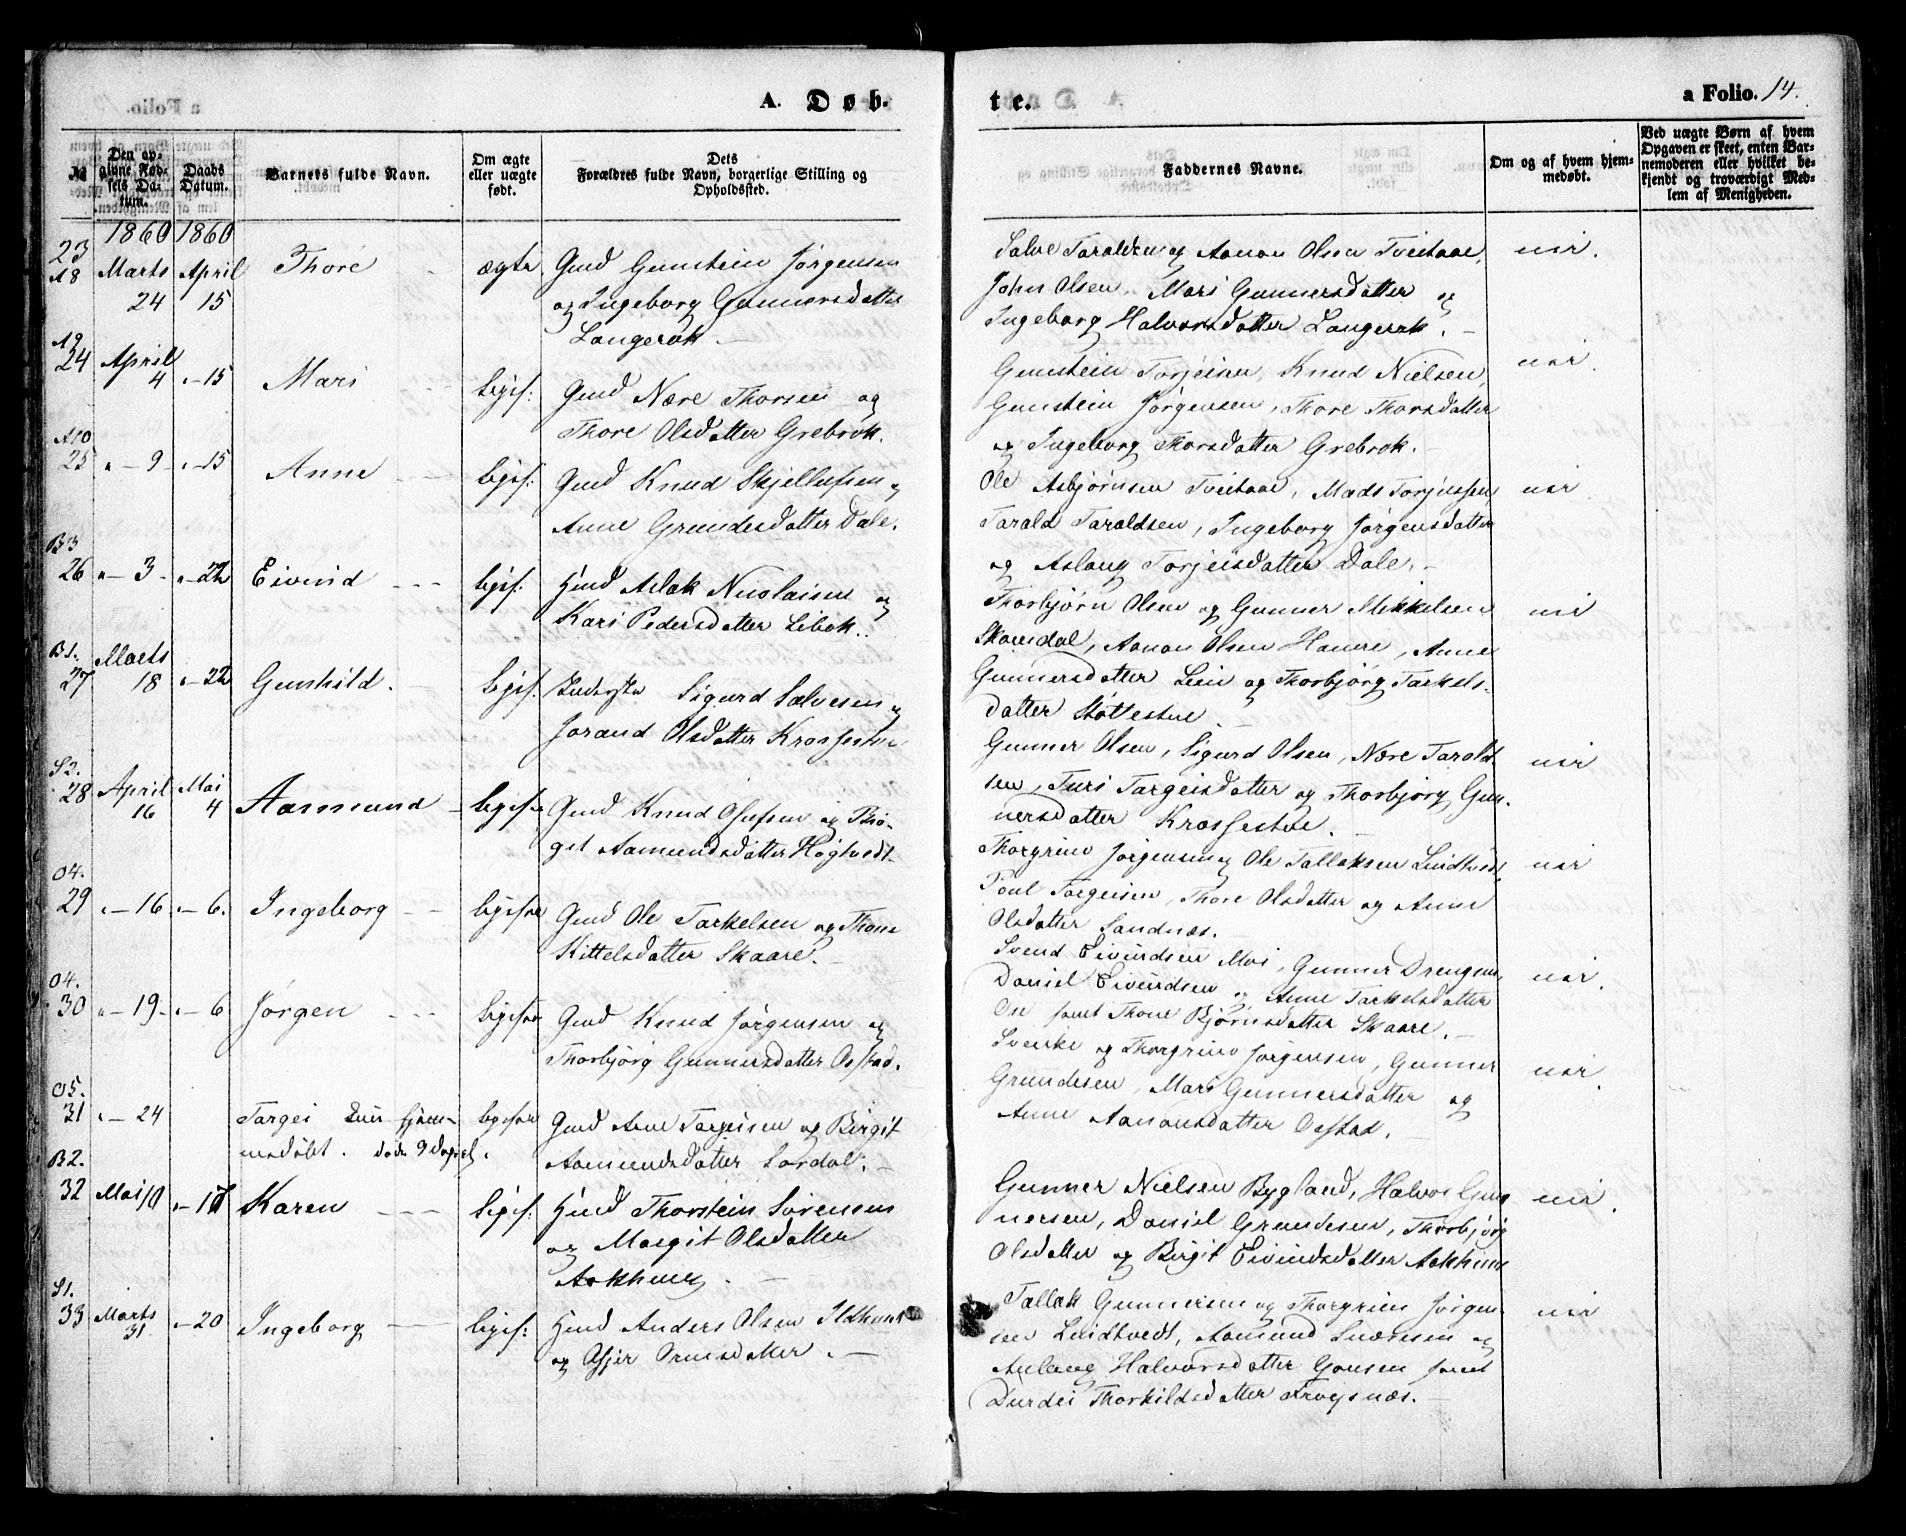 A. Døb-
te.
a Folio. 14.
№
Den opgivne Fødsels Datum.
Daabs Datum.
Barnets fulde Navn.
Om ægte eller uægte født.
Dets Forældres fulde Navn, borgerlige Stilling og Opholdssted.
Faddernes Navne.
Om og af hvem hjemmedøbt.
Ved uægte Børn af hvem Opgaven er skeet, enten Barnemoderen eller hvilket bekjendt og troværdigt Medlem af Menigheden.
1860 1860
23 A8 Marts 24 April 15 Thore ægte Gmd Gunstein Jørgensen
og Ingeborg Gunnersdatter
Langerak.
Salve Taraldsen og Aanon Olsen Tveitaae,
John Olsen, Mari Gunnersdatter og
Ingeborg Halvorsdatter Langerak.
A9 24 April 4 "-15 Mari liges: Gmd Nære Thorsen og
Thore Olsdatter Grebrok.
Gunstein Torjeisen, Knud Nielsen,
Gunstein Jørgensen, Thore Thorsdatter
og Ingeborg Thorsdatter Grebrok.
A10 25 "-9- "-15 Anne liges: Gmd Knud Skjellufsen og
Anne Grundesdatter Dale.
Ole Asbjørnsen Tveitaae, Mads Torjussen
Tarald Taraldsen, Ingeborg Jørgensdatter
og Aslaug Torjeisdatter Dale.
B3 26 "-3- "-22 Eivind liges: Hmd Aslak Nicolaisen og
Kari Pedersdatter Libok.
Thorbjørn Olsen og Gunner Mikkelsen
Skomedal, Aanon Olsen Haure, Anne
Gunnersdatter Lien og Thorbjørg Tarkels-
datter Støttestue.
B1. 27 Marts 18 "-22 Gunhild. ligef: Inderste Sigurd Salvesen og
Jorand Olsdatter Krossestue
Gunner Olsen, Sigurd Olsen, Nære Tarald
sen, Turi Targeisdatter og Thorbjørg Gun-
nersdatter Krossestue.
S2. 28 April 16 Mai 4 Aasmund ligesaa Gmd Knud Olufsen og Birgit Aamundsdatter Høgtvedt
Thorgrim Jørgensen og Ole Tallaksen Lindtvedt,
Poul Torgeisen, Thore Olsdatter og Anne
Olsdatter Sandnæs.
O4. 29 "-16 "-6. Ingeborg ligesaa Gmd Ole Tarkelsen og Thone
Kittelsdatter Skaare.
Svend Eivindsen Moi, Gunner Drengsen
Daniel Eivindsen og Anne Tarkelsdatter
Ose samt Thone Bjørnsdatter Skaare.
O4. 30 "-19- "-6 Jørgen ligesaa Gmd Knud Jørgensen og
Thorbjörg Gunnersdatter Ose stad.
og Thorgrim Jørgensen, Gunner
Grundesen, Mari Gunnersdatter og
Anne Aanonsdatter Ose stad.
O5. 31 "-24 Targei hjem-
medøbt. døde 9 Dage ligesaa Gmd Arne Targeisen og Birgit
Aamundsdatter Sordal.
B2. 32 Mai 10 "-17 Karen ligef: Hmd Thorstein Sørensen
og Margit Olsdatter
Aakhuus.
Gunner Nielsen Bygland, Halvor Gun
nersen, Daniel Grundesen, Thorbjørg
Olsdatter og Birgit Eivindsdatter Aakhuus
S1. 33 Marts 31. "-20 Ingeborg ligef: Hmd Anders Olsen
og Asjer Ormsdatter.
Tallak Gunnersen og Thorgrim Jørgen
sen Lindtvedt, Aamund Sværesen og
Aslaug Halvorsdatter Gousen samt
Durdei Thorkildsdatter Frøysnæs.
nei.
nei.
nei
nei
nei
nei
nei.
nei.
nei.
nei